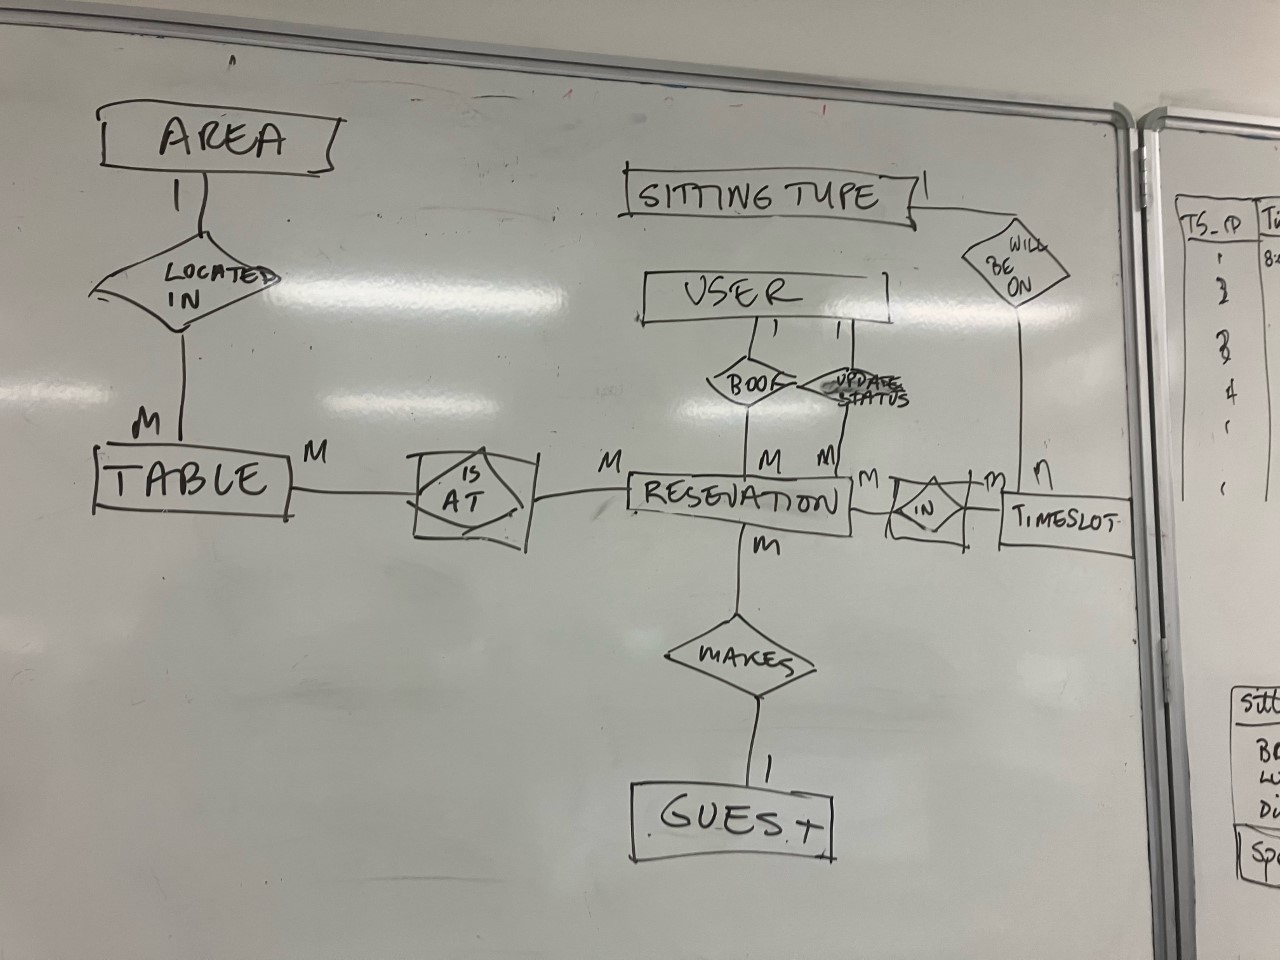 AREA
1
LOCATED
IN
M
TABLE
M
IS
AT
M
SITTING TYPE
1
WILL
BE
ON
USER
1
1
BOOK
UPDATE
STATUS
M
M
RESEVATION
M
IN
M
n
TIMESLOT
M
MAKES
1
GUEST
TS_ID
Ti
1
2
3
4
Sitt
BR
LU
Di
Spe